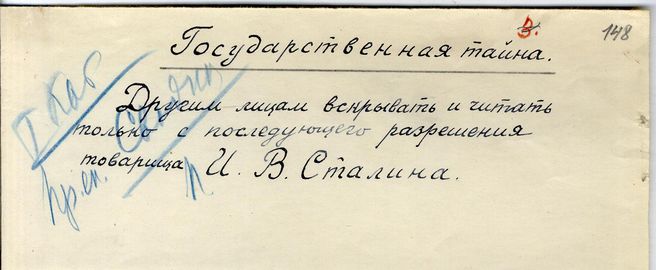 3.
148
Государственная тайна.
Другим лицам вскрывать и читать
только с последующего разрешения
товарища И. В. Сталина.
I Кат